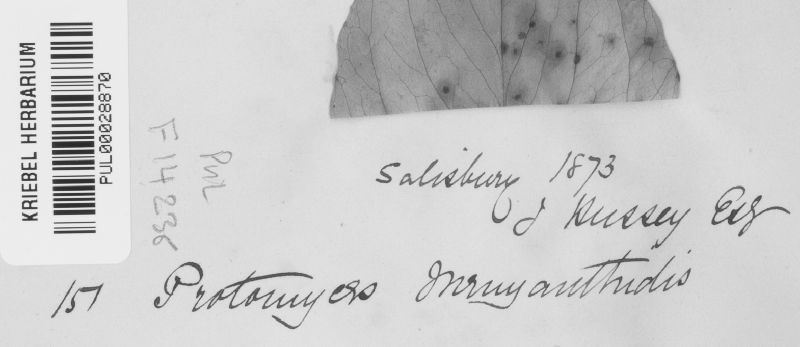 KRIEBEL HERBARIUM
PUL00028870
PUL
F14236
Salisbury 1873
J Hussey Esq
151 Protomyces Menyanthidis